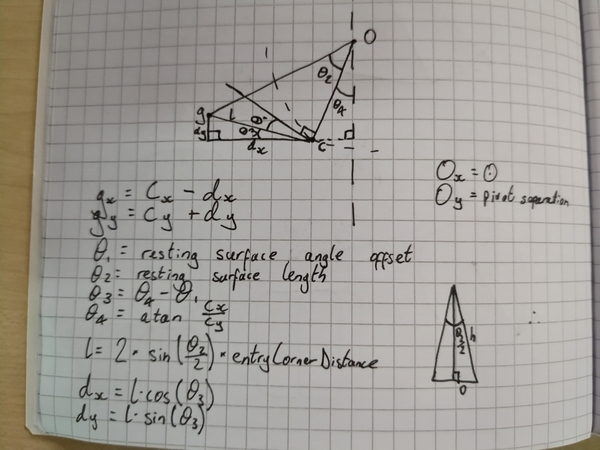 O
θ₂
θ₄
g
l
θ₁
dy
θ₃
dx
c
gx = Cx - dx
gy = Cy + dy
Ox = 0
Oy = pivot separation
θ₁ = resting surface angle offset
θ₂ = resting surface length
θ₃ = θ₄ - θ₁
θ₄ = atan Cx/Cy
l = 2 · sin(θ₂/2) · entryCornerDistance
dx = l·cos(θ₃)
dy = l·sin(θ₃)
∴
θ/2
h
O